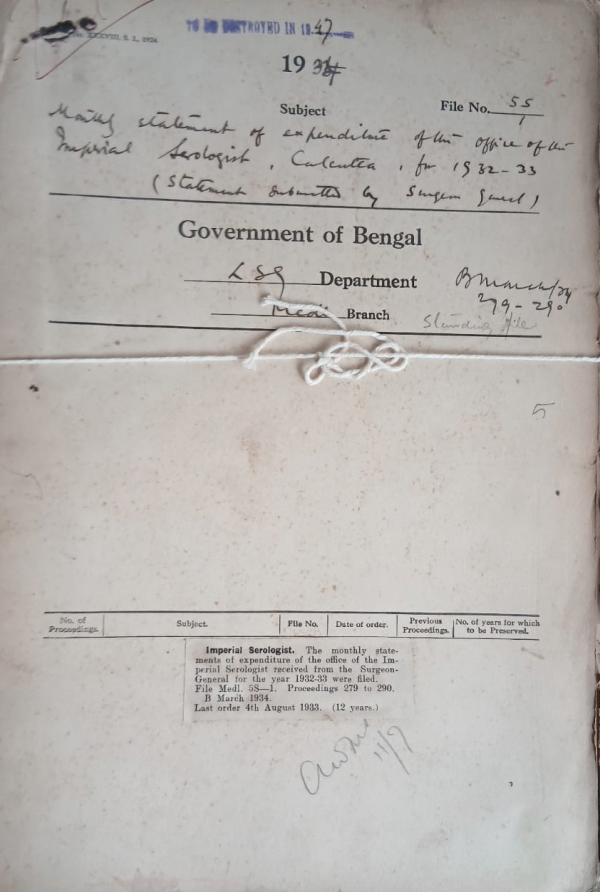 XXXVIII, S. 1, 1924
TO BE DESTROYED IN 1947
1934
Subject
File No. 5S/1
Monthly statement of expenditure of the office of the
Imperial Serologist, Calcutta, for 1932-33
(Statement submitted by Surgeon General)
Government of Bengal
LSG Department
B March/34
279-290
Medl Branch
Standing file
5
No. of Proceedings.
Subject.
File No.
Date of order.
Previous Proceedings.
No. of years for which to be Preserved.
Imperial Serologist. The monthly state-
ments of expenditure of the office of the Im-
perial Serologist received from the Surgeon-
General for the year 1932-33 were filed.
File Medl. 5S—1. Proceedings 279 to 290.
B March 1934.
Last order 4th August 1933. (12 years.)
11/7